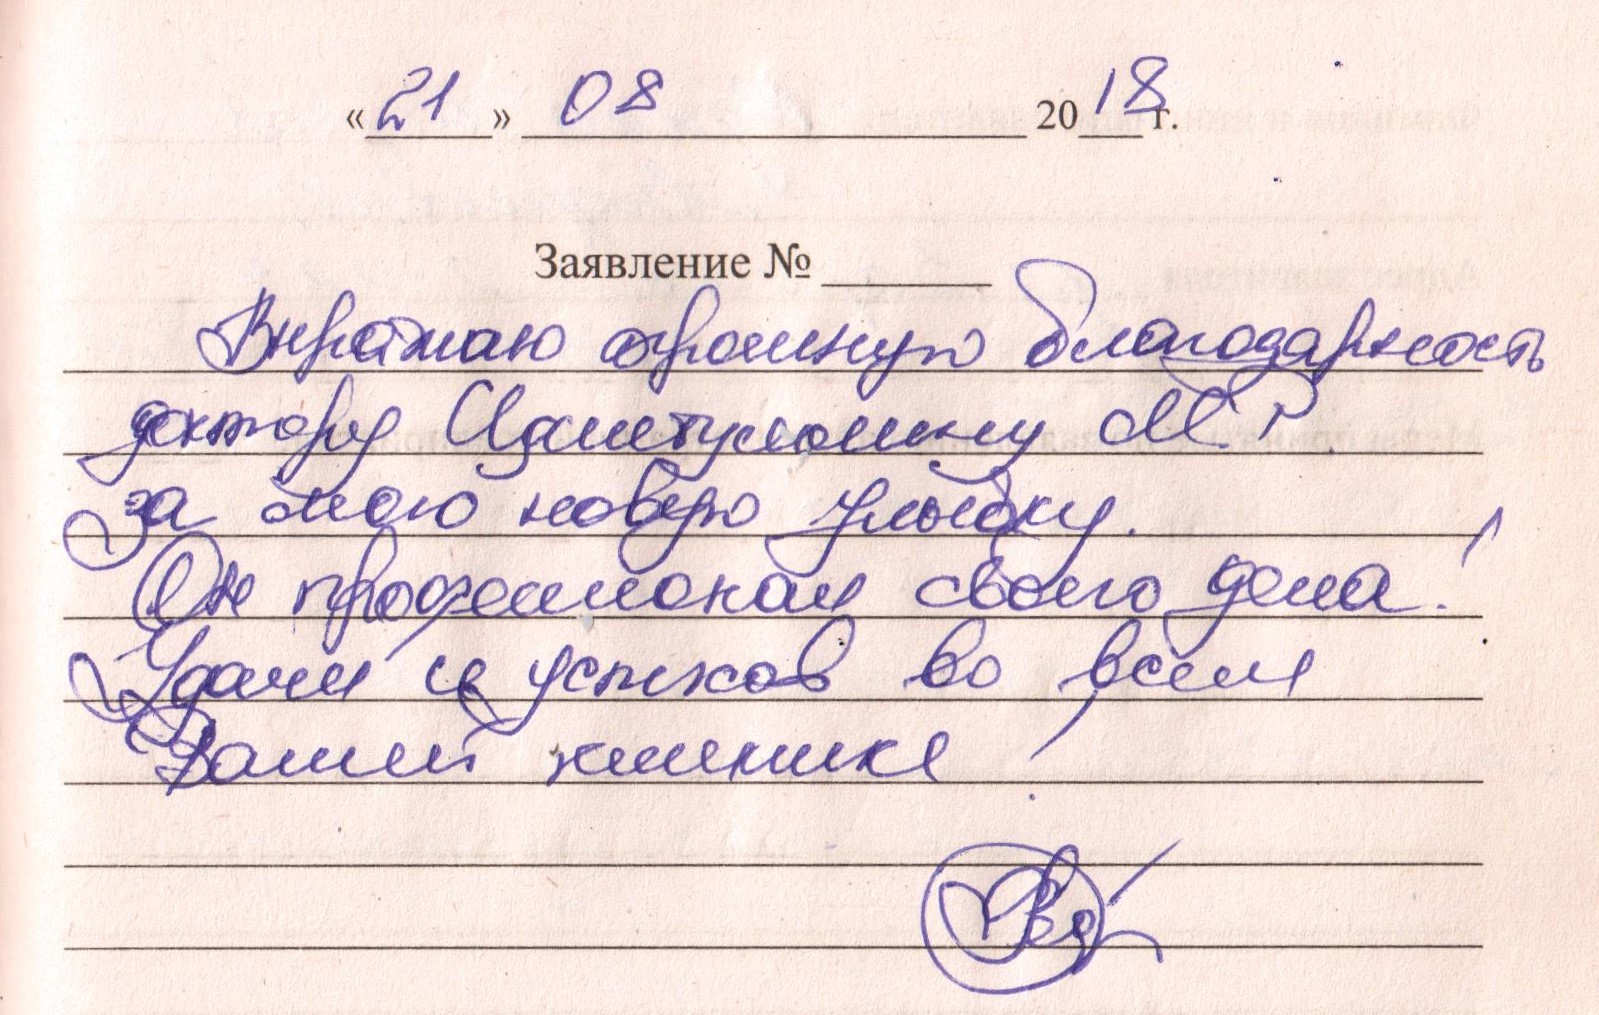 «21» 08 2018 г.
Заявление №
Выражаю огромную благодарность
доктору М. Р.
за мою новую улыбку.
Он профессионал своего дела!
Удачи и успехов во всем
Вашей клинике!